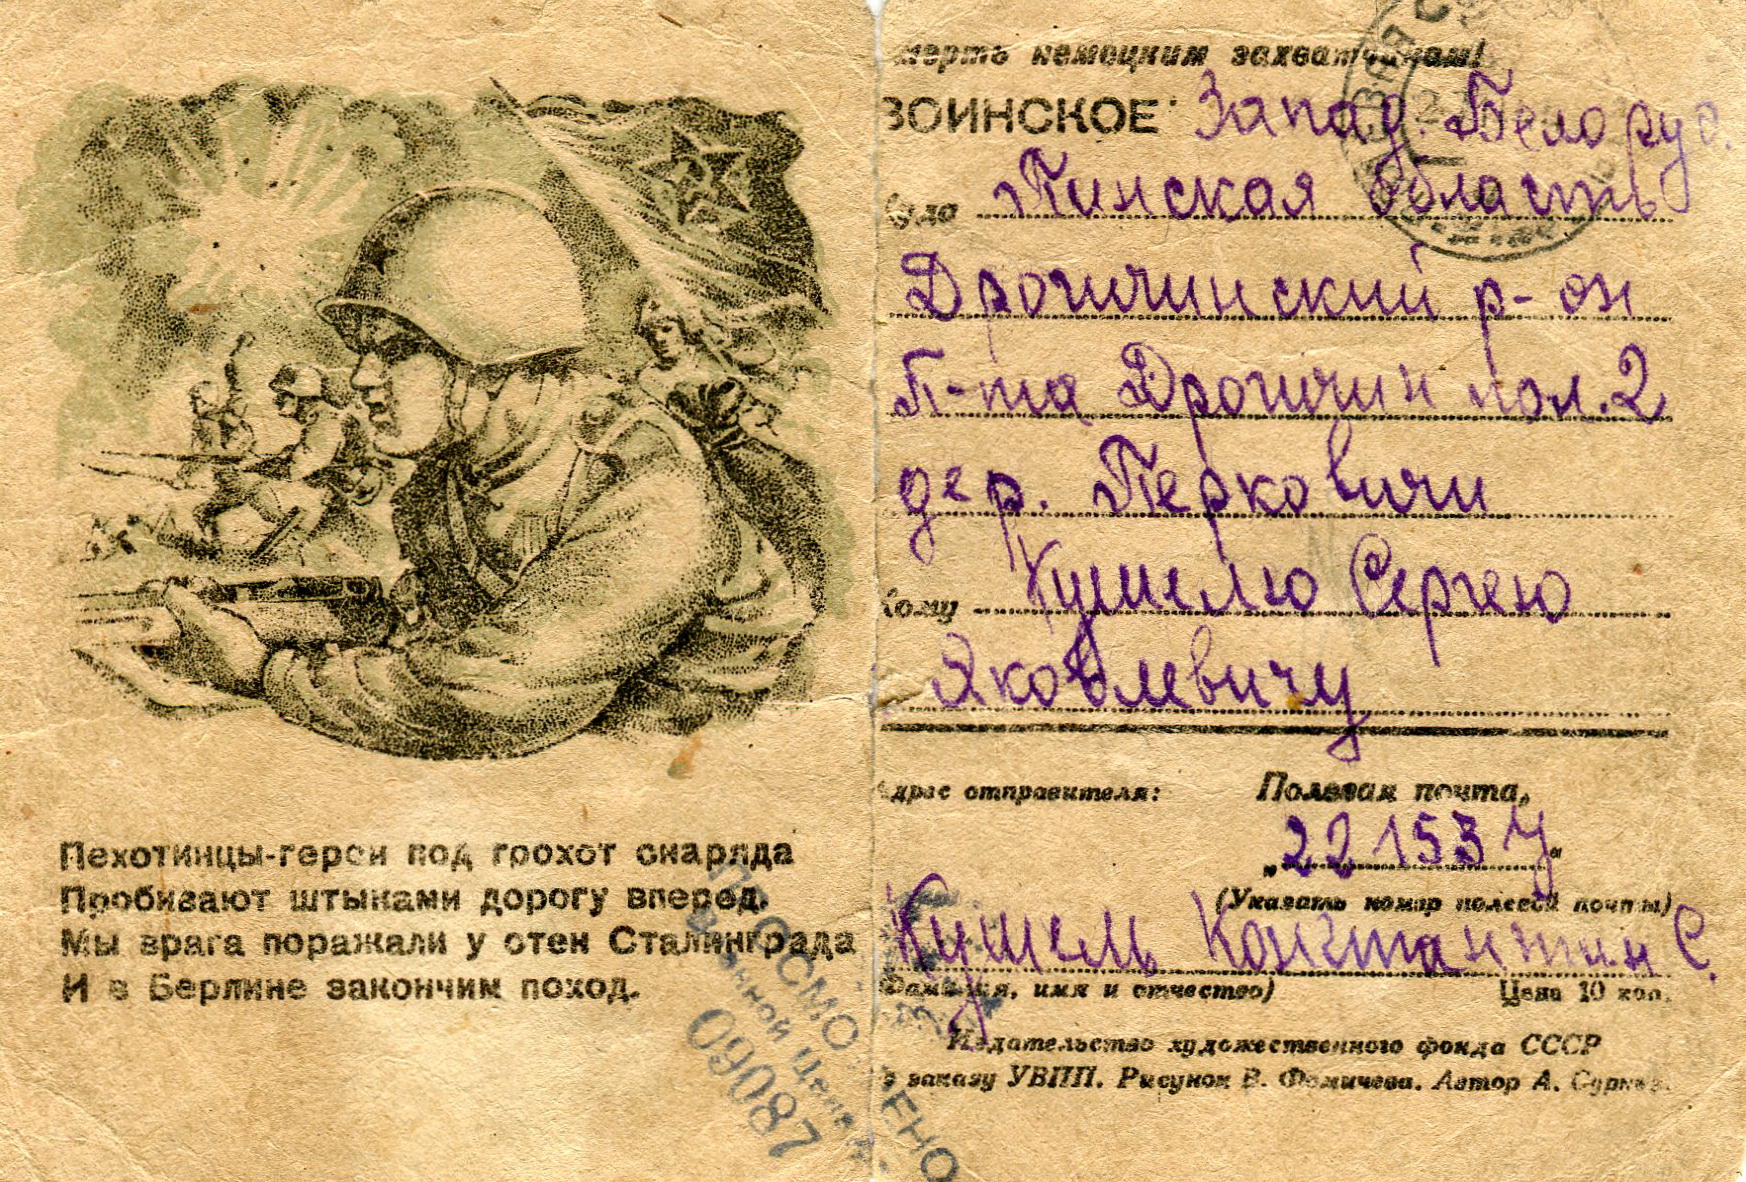 Пехотинцы-герои под грохот снаряда
Пробивают штыками дорогу вперед.
Мы врага поражали у стен Сталинграда
И в Берлине закончим поход.
ПРОСМОТРЕНО
Военной Цензурой
09087
смерть немецким захватчикам!
ВОИНСКОЕ Запад. Белорус.
Куда Пинская область
Дрогичинский р-он
П-та Дрогичин пол. 2
дер. Перковичи
Кому Кушелю Сергею
Яковлевичу
Адрес отправителя: Полевая почта,
„22153 У“
(Указать номер полевой почты)
Кушель Константин С.
(Фамилия, имя и отчество) Цена 10 коп.
Издательство художественного фонда СССР
По заказу УВПП. Рисунок В. Фомичева. Автор А. Сурков.